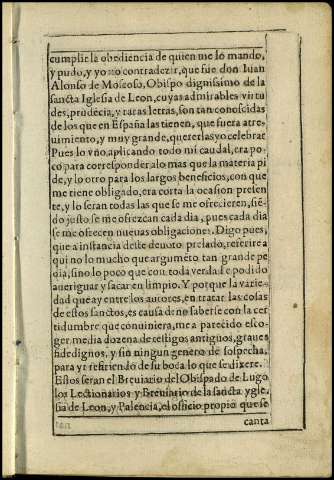 cumplir la obediencia de quien me lo mando,
y pudo, y yo no contradezir, que fue don Iuan
Alonso de Moscoso, Obispo dignissimo de la
sancta Iglesia de Leon, cuyas admirables virtu
des, prudẽcia, y raras letras, son tan conoscidas
de los que en España las tienen, que fuera atre-
uimiento, y muy grande, querer las yo celebrar
Pues lo vno, aplicando todo mi caudal, era po
co para corresponder a lo mas que la materia pi
de, y lo otro para los largos beneficios, con que
me tiene obligado, era corta la ocasion presen
te, y lo seran todas las que se me ofrecieren, siẽ-
do justo se me ofrezcan cada dia, pues cada dia
se me ofrecen nueuas obligaciones. Digo pues,
que a instancia deste deuoto prelado, referire a
qui no lo mucho que argumẽto tan grande pe
dia, sino lo poco que con toda verdad se podido
aueriguar y sacar en limpio. Y porque la varie-
dad que ay entre los autores, en tratar las cosas
de estos sanctos, es causa de no saberse con la cer
tidumbre que conuiniera, me a parecido esco-
ger media dozena de testigos antiguos, graues
fidedignos, y sin ningun genero de sospecha,
para yr refiriendo de su boca lo que se dixere.
Estos seran el Breuiario del Obispado de Lugo
los Lectionarios y Breuiario de la sancta ygle-
sia de Leon, y Palencia, el officio propio que se
canta